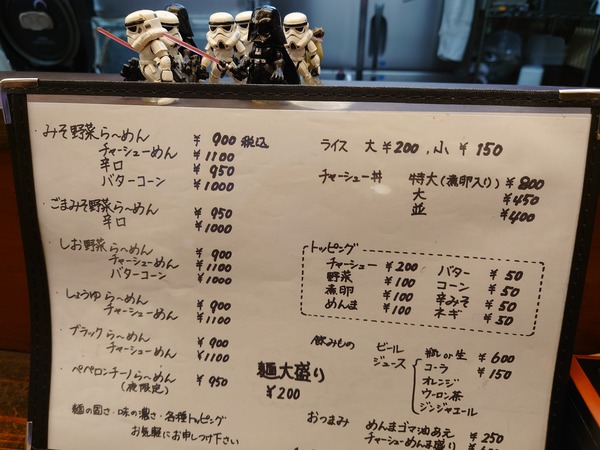 みそ野菜ら〜めん ¥900 税込
チャーシューめん ¥1100
辛口 ¥950
バターコーン ¥1000
ごまみそ野菜ら〜めん ¥950
辛口 ¥1000
しお野菜ら〜めん ¥900
チャーシューめん ¥1100
バターコーン ¥1000
しょうゆら〜めん ¥900
チャーシューめん ¥1100
ブラックら〜めん ¥900
チャーシューめん ¥1100
ペペロンチーノら〜めん ¥950
(夜限定)
麺の固さ・味の濃さ・各種トッピング
お気軽にお申しつけ下さい
麺大盛り
¥200
ライス 大 ¥200 , 小 ¥150
チャーシュー丼 特大(煮卵入り) ¥800
大 ¥450
並 ¥400
トッピング
チャーシュー ¥200
野菜 ¥100
煮卵 ¥100
めんま ¥100
バター ¥50
コーン ¥50
辛みそ ¥50
ネギ ¥50
飲みもの ビール 瓶or生 ¥600
ジュース コーラ ¥150
オレンジ
ウーロン茶
ジンジャエール
おつまみ めんまゴマ油あえ ¥250
チャーシューめんま盛り